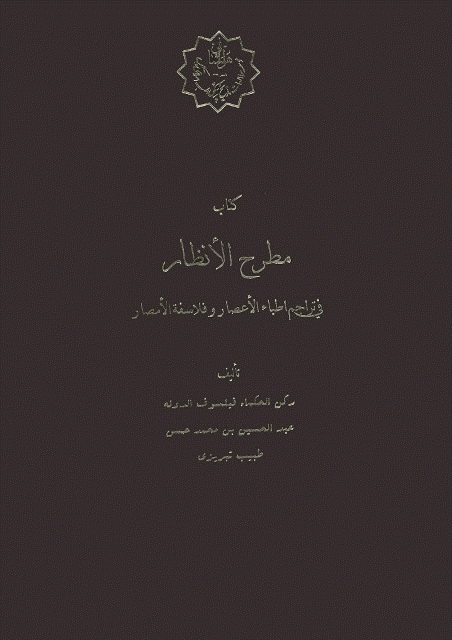 كتاب
مطرح الأنظار
في تراجم اطباء الأعصار و فلاسفة الأمصار
تأليف
ركن الحكماء فيلسوف الدوله
عبد الحسين بن محمد حسن
طبيب تبريزى